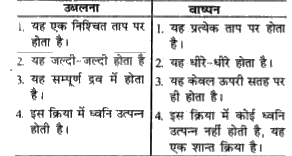 उबलना
वाष्पन
1. यह एक निश्चित ताप पर
होता है।
2. यह जल्दी-जल्दी होता है
3. यह सम्पूर्ण द्रव में होता
है।
4. इस क्रिया में ध्वनि उत्पन्न
होती है।
1. यह प्रत्येक ताप पर होता
है।
2. यह धीरे-धीरे होता है।
3. यह केवल ऊपरी सतह पर
ही होता है।
4. इस क्रिया में कोई ध्वनि
उत्पन्न नहीं होती है, यह
एक शान्त क्रिया है।